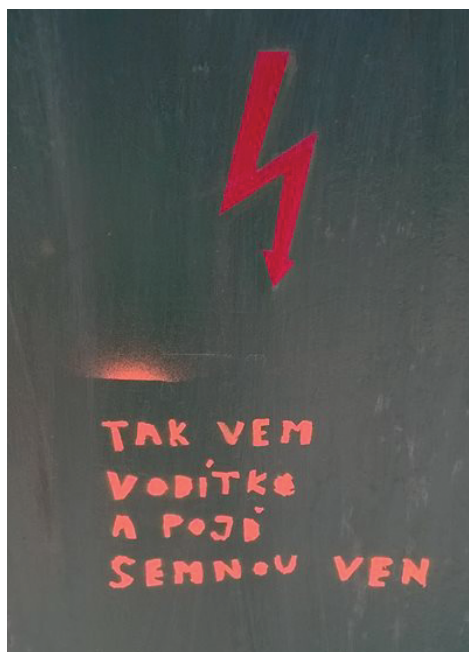 TAK VEM
VODÍTKO
A POJĎ
SEMNOU VEN